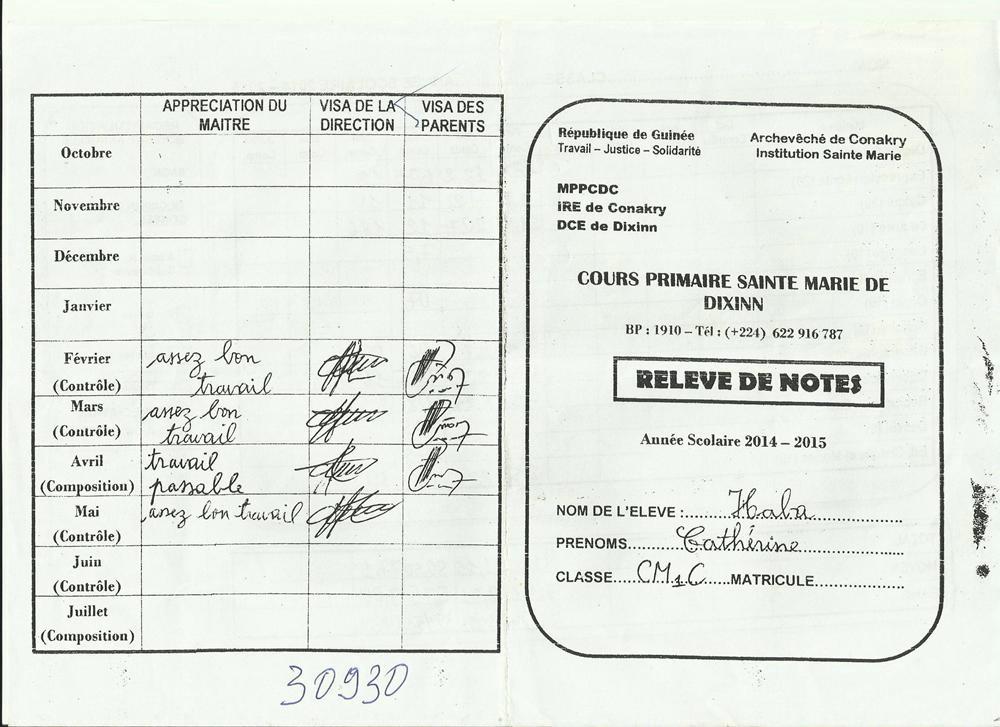 APPRECIATION DU MAITRE VISA DE LA DIRECTION VISA DES PARENTS
Octobre
Novembre
Décembre
Janvier
Février (Contrôle) assez bon travail
Mars (Contrôle) assez bon travail
Avril (Composition) travail passable
Mai (Contrôle) assez bon travail
Juin (Contrôle)
Juillet (Composition)
30930
République de Guinée
Travail – Justice – Solidarité
Archevêché de Conakry
Institution Sainte Marie
MPPCDC
iRE de Conakry
DCE de Dixinn
COURS PRIMAIRE SAINTE MARIE DE
DIXINN
BP : 1910 – Tél : (+224) 622 916 787
RELEVE DE NOTES
Année Scolaire 2014 – 2015
NOM DE L'ELEVE :......Haba..............
PRENOMS........Cathérine................
CLASSE....CM1C......MATRICULE...............